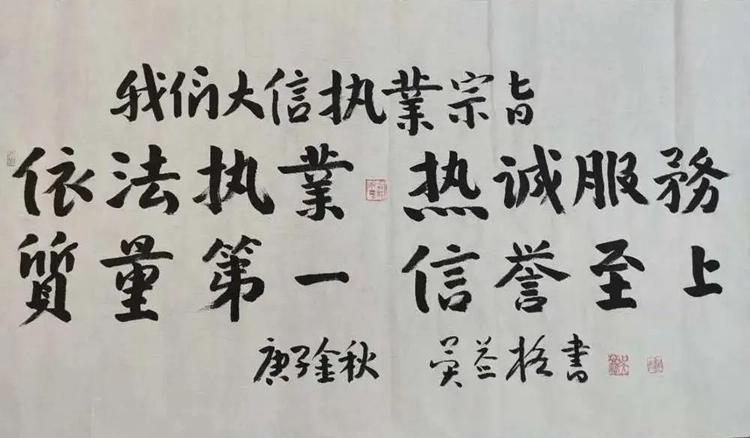 我们大信执業宗旨
依法执業 热诚服務
質量第一 信誉至上
庚子金秋 吴益格書